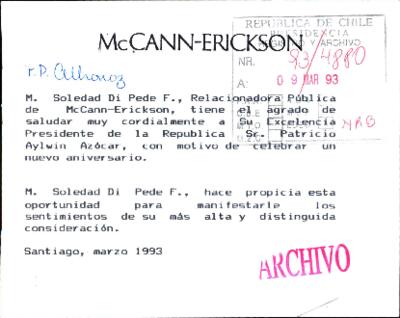 REPUBLICA DE CHILE
PRESIDENCIA
REGISTRO Y ARCHIVO
McCANN-ERICKSON
NR. 93/4880
r.P. Alhonoz
A: 09 MAR 93
M. Soledad Di Pede F., Relacionadora Pública
de McCann-Erickson, tiene el agrado de
saludar muy cordialmente a Su Excelencia
Presidente de la Republica Sr. Patricio
Aylwin Azócar, con motivo de celebrar un
nuevo aniversario.
M. Soledad Di Pede F., hace propicia esta
oportunidad para manifestarle los
sentimientos de su más alta y distinguida
consideración.
Santiago, marzo 1993
ARCHIVO